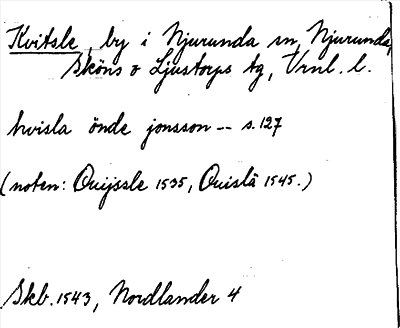 Kvitsle, by i Njurunda sn, Njurunda,
Sköns o Ljustorps tg, Vrnl. l.
hvisla önde jonsson -- s. 127
(noten: Quijssle 1535, Quislä 1545.)
Skb. 1543, Nordlander 4